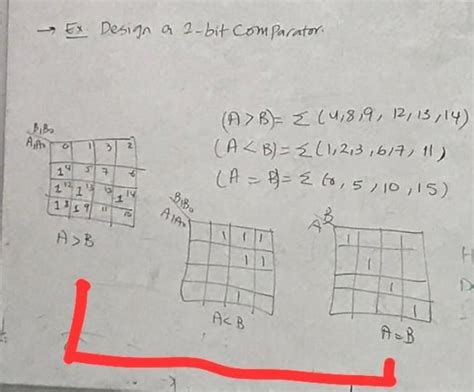 → Ex. Design a 2-bit Comparator.
(A > B) = Σ (4,8,9, 12, 13, 14)
(A < B) = Σ (1,2,3, 6,7, 11)
(A = B) = Σ (0, 5, 10, 15)
B₁B₀
A₁A₀
0 1 3 2
1 4 5 7 6
1 12 1 13 15 1 14
1 8 1 9 11 10
A > B
B₁B₀
A₁A₀
1 1 1
1 1
1
A < B
B
A
1
1
1
1
A = B